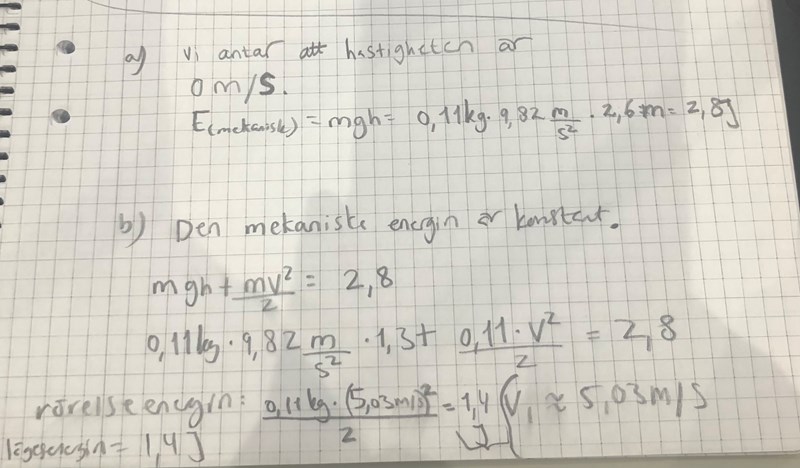 a) Vi antar att hastigheten är
0 m/s.
E(mekanisk) = mgh = 0,11kg · 9,82 m/s² · 2,6 m = 2,8J
b) Den mekaniska energin är konstant.
mgh + mv²/2 = 2,8
0,11kg · 9,82 m/s² · 1,3 + 0,11 · v²/2 = 2,8
rörelseenergin: 0,11kg · (5,03m/s)²/2 = 1,4 J (V₁ ≈ 5,03m/s
lägesenergin = 1,4J